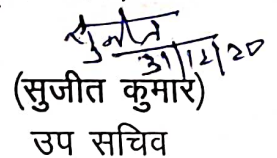 सुजीत
31/12/20
(सुजीत कुमार)
उप सचिव